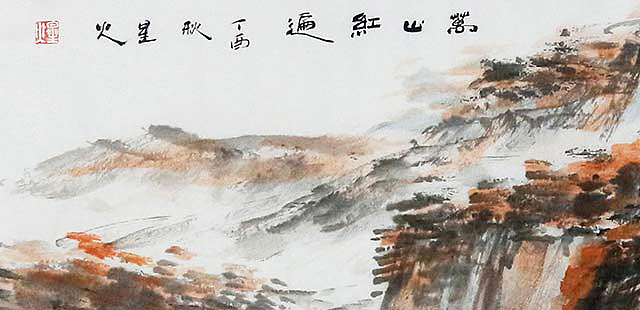 萬山紅遍 丁酉秋 星火